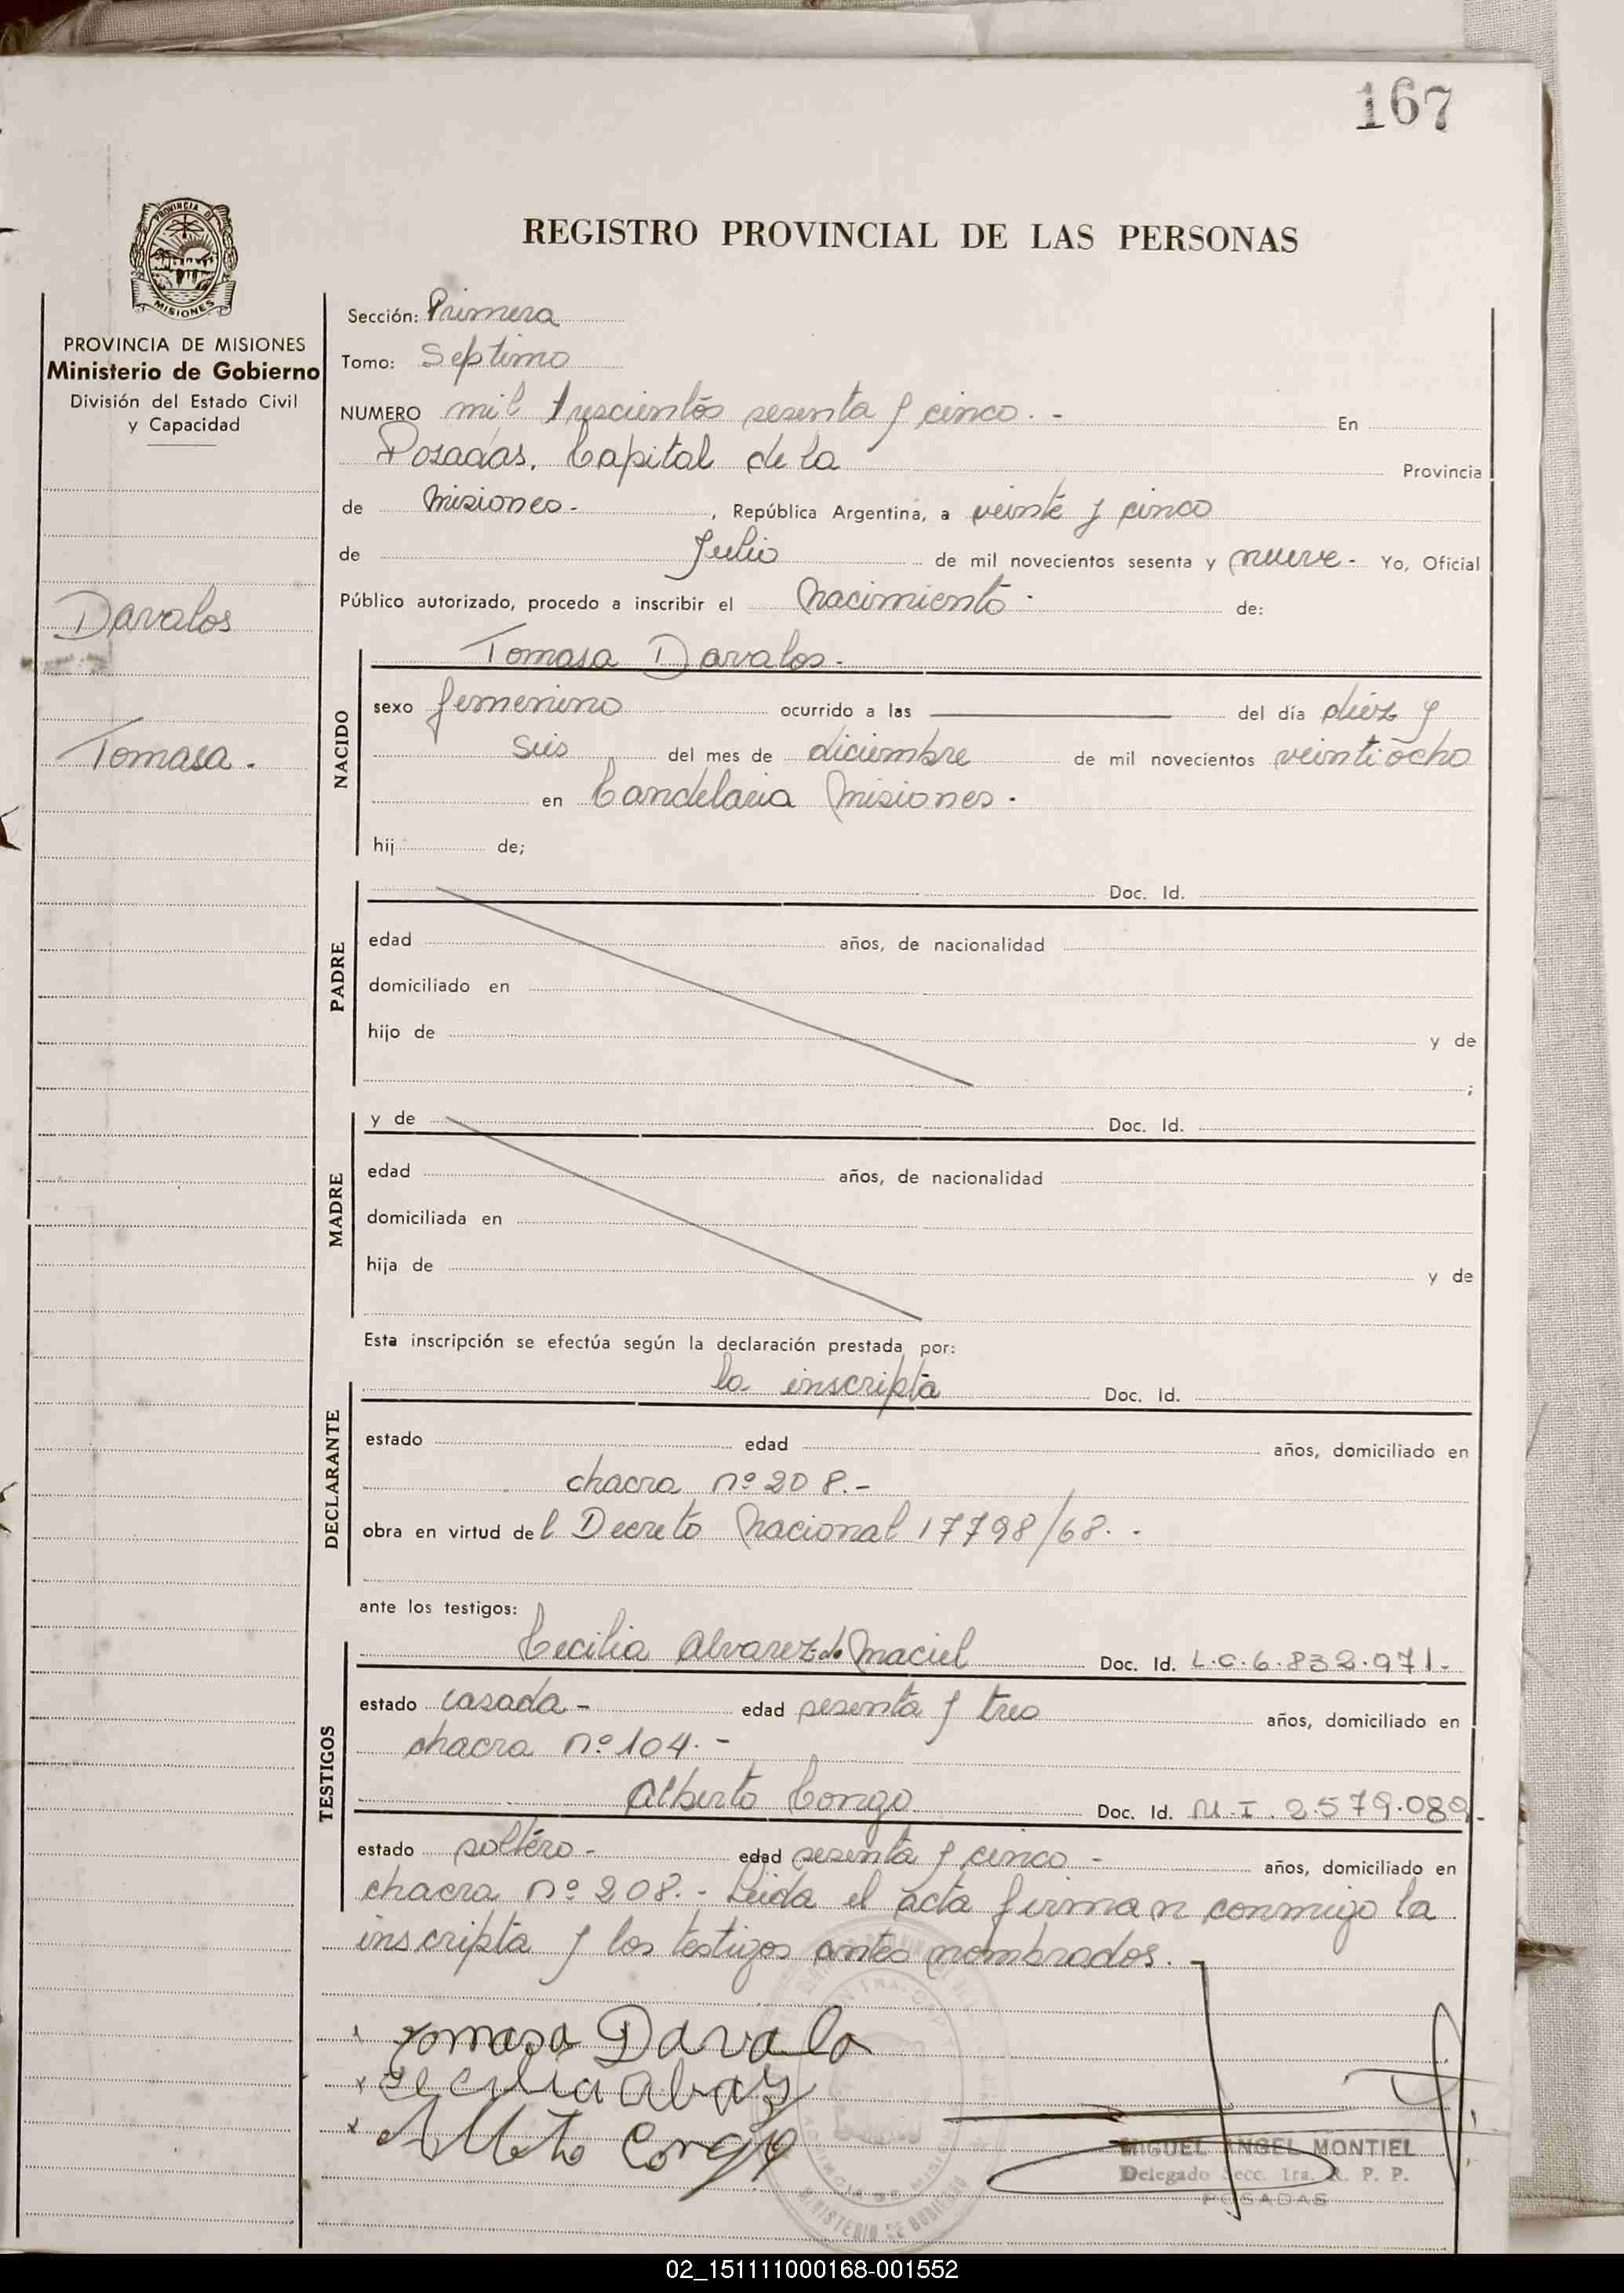 167
PROVINCIA DE
MISIONES
PROVINCIA DE MISIONES
Ministerio de Gobierno
División del Estado Civil
y Capacidad
Davalos
Tomasa.
REGISTRO PROVINCIAL DE LAS PERSONAS
Sección: Primera
Tomo: Septimo
NUMERO mil trescientos sesenta y cinco. - En
Posadas. Capital de la Provincia
de Misiones - , República Argentina, a veinte y cinco
de Julio de mil novecientos sesenta y nueve - Yo, Oficial
Público autorizado, procedo a inscribir el nacimiento - de:
NACIDO
Tomasa Davalos -
sexo femenino ocurrido a las ——— del día diez y
seis del mes de diciembre de mil novecientos veintiocho
en Candelaria Misiones -
hij de;
PADRE
Doc. Id.
edad años, de nacionalidad
domiciliado en
hijo de y de
;
MADRE
y de Doc. Id.
edad años, de nacionalidad
domiciliada en
hija de y de
Esta inscripción se efectúa según la declaración prestada por:
DECLARANTE
la inscripta Doc. Id.
estado edad años, domiciliado en
chacra nº 208.-
obra en virtud del Decreto Nacional 17798/68. -
ante los testigos:
TESTIGOS
Cecilia Alvarez de Maciel Doc. Id. L.C. 6.832.971-
estado casada - edad sesenta y tres años, domiciliado en
chacra nº 104. -
Alberto Congo Doc. Id. M.I. 2.579.089-
estado soltero - edad sesenta y cinco - años, domiciliado en
chacra nº 208. - Leida el acta firman conmigo la
inscripta y los testigos antes nombrados. -
x Tomasa Davalo
x Cecilia Albarez
x Alberto Congo
MINISTERIO DE GOBIERNO
MIGUEL ANGEL MONTIEL
Delegado Secc. 1ra. R. P. P.
POSADAS
02_151111000168-001552